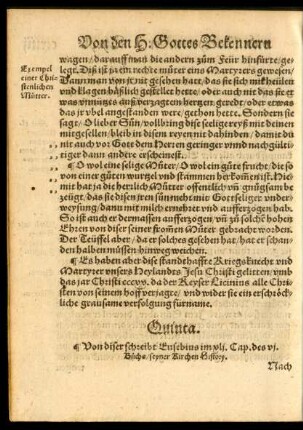 Von den H: Gottes Bekennern
wagen / darauff man die andern zům Feür hinfürge-
legt. Diß ist ja ein rechte můter eins Martyrers gewesen /
Dann man von jr nit gesehen hat / das sie sich mit heülen
vnd klagen häßlich gestellet hette / oder auch nit das sie et
was vnnützes auß verzagtem hertzen geredt / oder etwas
das jr übel angestanden were / gethon hette. Sondern sie
sagt / O lieber Sün / vollbring dise seelige reyß mit deinen
mitgesellen / bleib in disem reyen nit dahinden / damit du
nit auch vor Gott dem Herren geringer vnnd nachgülti-
tiger dann andere erscheinest.
¶ O wol eine selige Wurtzel / O wol ein gůte frucht / die so
von einer gůten wurtzel vnd stammen herkom̃en ist. Hie-
mit hat ja die herrlich Můtter offentlich vn̄ gnůgsam be
zeügt / das sie disen jren sün nicht mit Gottseliger vnder-
weysung / dann mit milch erneheret vnd aufferzogen hab.
So ist auch er dermassen aufferzogen / vn̄ zů solche hohen
Ehren von diser seiner from̃en Můter gebracht worden.
Der Teüffel aber / da er solches gesehen hat / hat er schan-
den halben müssen hinweg weichen.
¶ Es haben aber dise standthaffte Kriegsknecht vnd
Martyrer vnsers Heylandts Jesu Christi gelitten / vmb
das jar Christi cccxx. da der Keyser Licinius alle Chri-
sten von seinem hoff verjagte / vnd wider sie ein erschröck-
liche grausame verfolgung fürname.
Exempel
einer Chri-
stenlichen
Můtter.
Quinta.
¶ Von diser schreibt Eusebius im xli. Cap. des vj.
Bůchs / seyner Kirchen History.
Nach